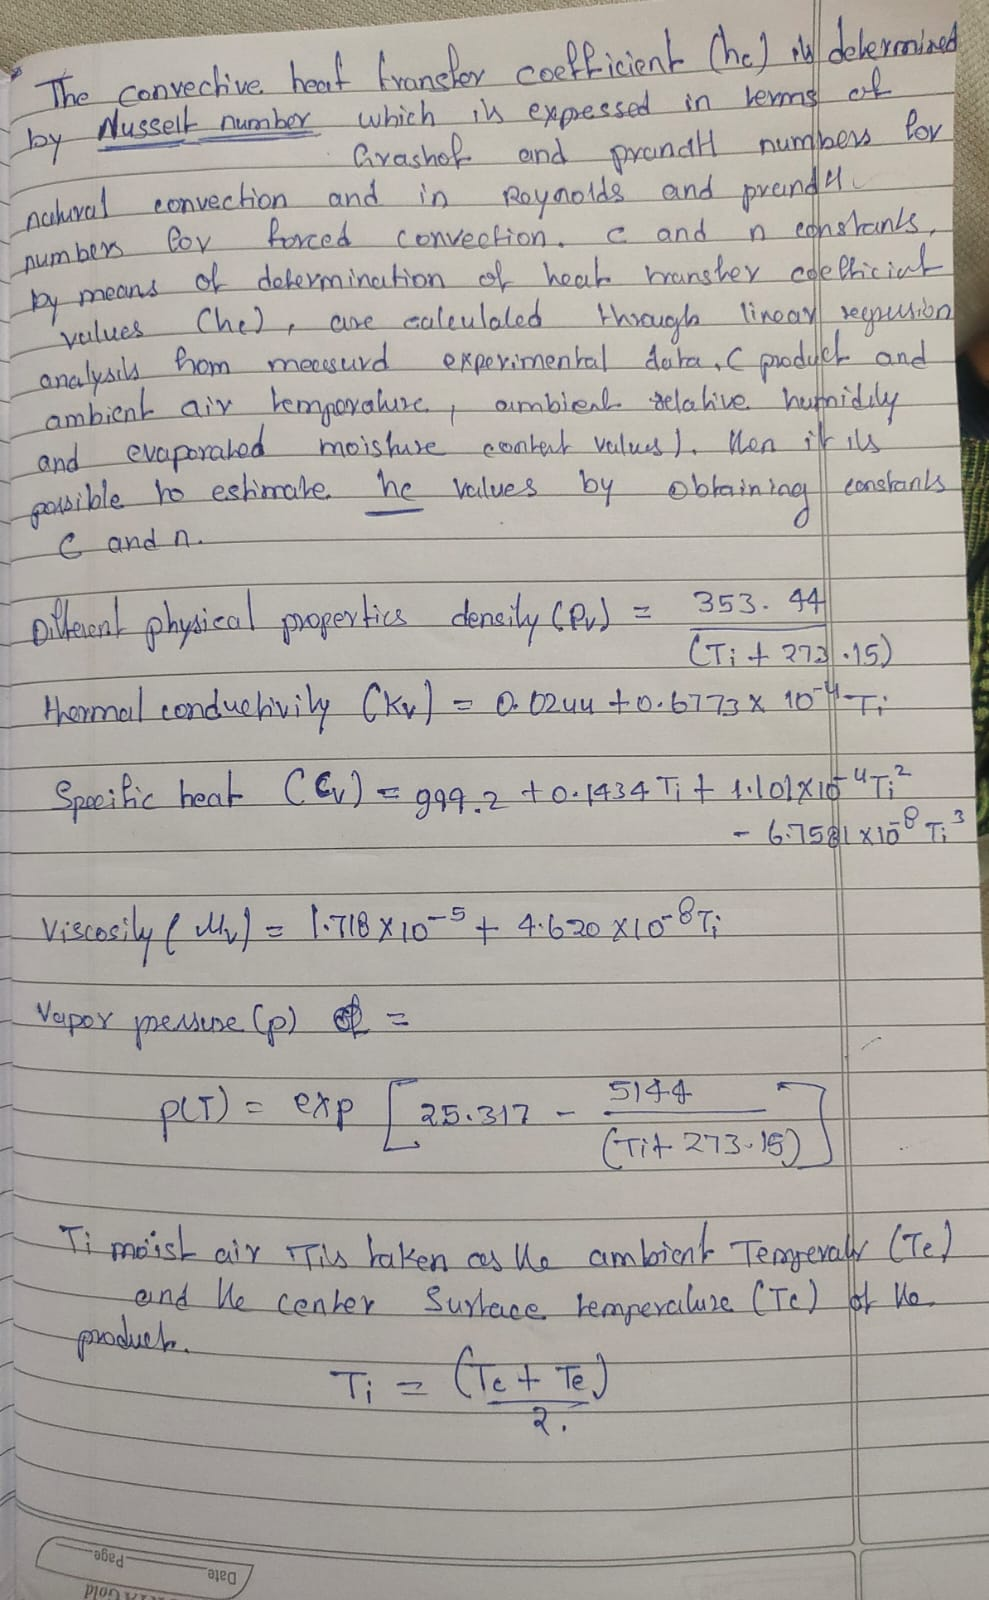 The convective heat transfer coefficient (hc) is determined
by Nusselt number which is expressed in terms of
Grashof and prandtl numbers for
natural convection and in Reynolds and prandtl
numbers for forced convection. C and n constants,
by means of determination of heat transfer coefficient
values (hc), are calculated through linear regression
analysis from measurd experimental data, ( product and
ambient air temperature, ambient relative humidity
and evaporated moisture content values). then it is
possible to estimate hc values by obtaining constants
C and n.
Different physical properties density (ρv) = 353.44 / (Ti + 273.15)
thermal conductivity (Kv) = 0.0244 + 0.6773 × 10⁻⁴ Ti
Specific heat (Cv) = 999.2 + 0.1434 Ti + 1.101×10⁻⁴Ti²
- 6.7581×10⁻⁸ Ti³
Viscosity (μv) = 1.718×10⁻⁵ + 4.620×10⁻⁸Ti
Vapor pressure (p) =
p(T) = exp [25.317 - 5144 / (Ti + 273.15)]
Ti moist air is taken as the ambient Temperature (Te)
and the center Surface temperature (Tc) of the
product.
Ti = (Tc + Te) / 2.
Page
Date
Gold